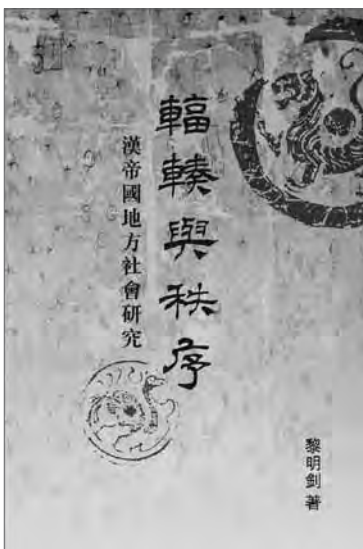 輻輳與秩序
漢帝國地方社會研究
黎明釗著